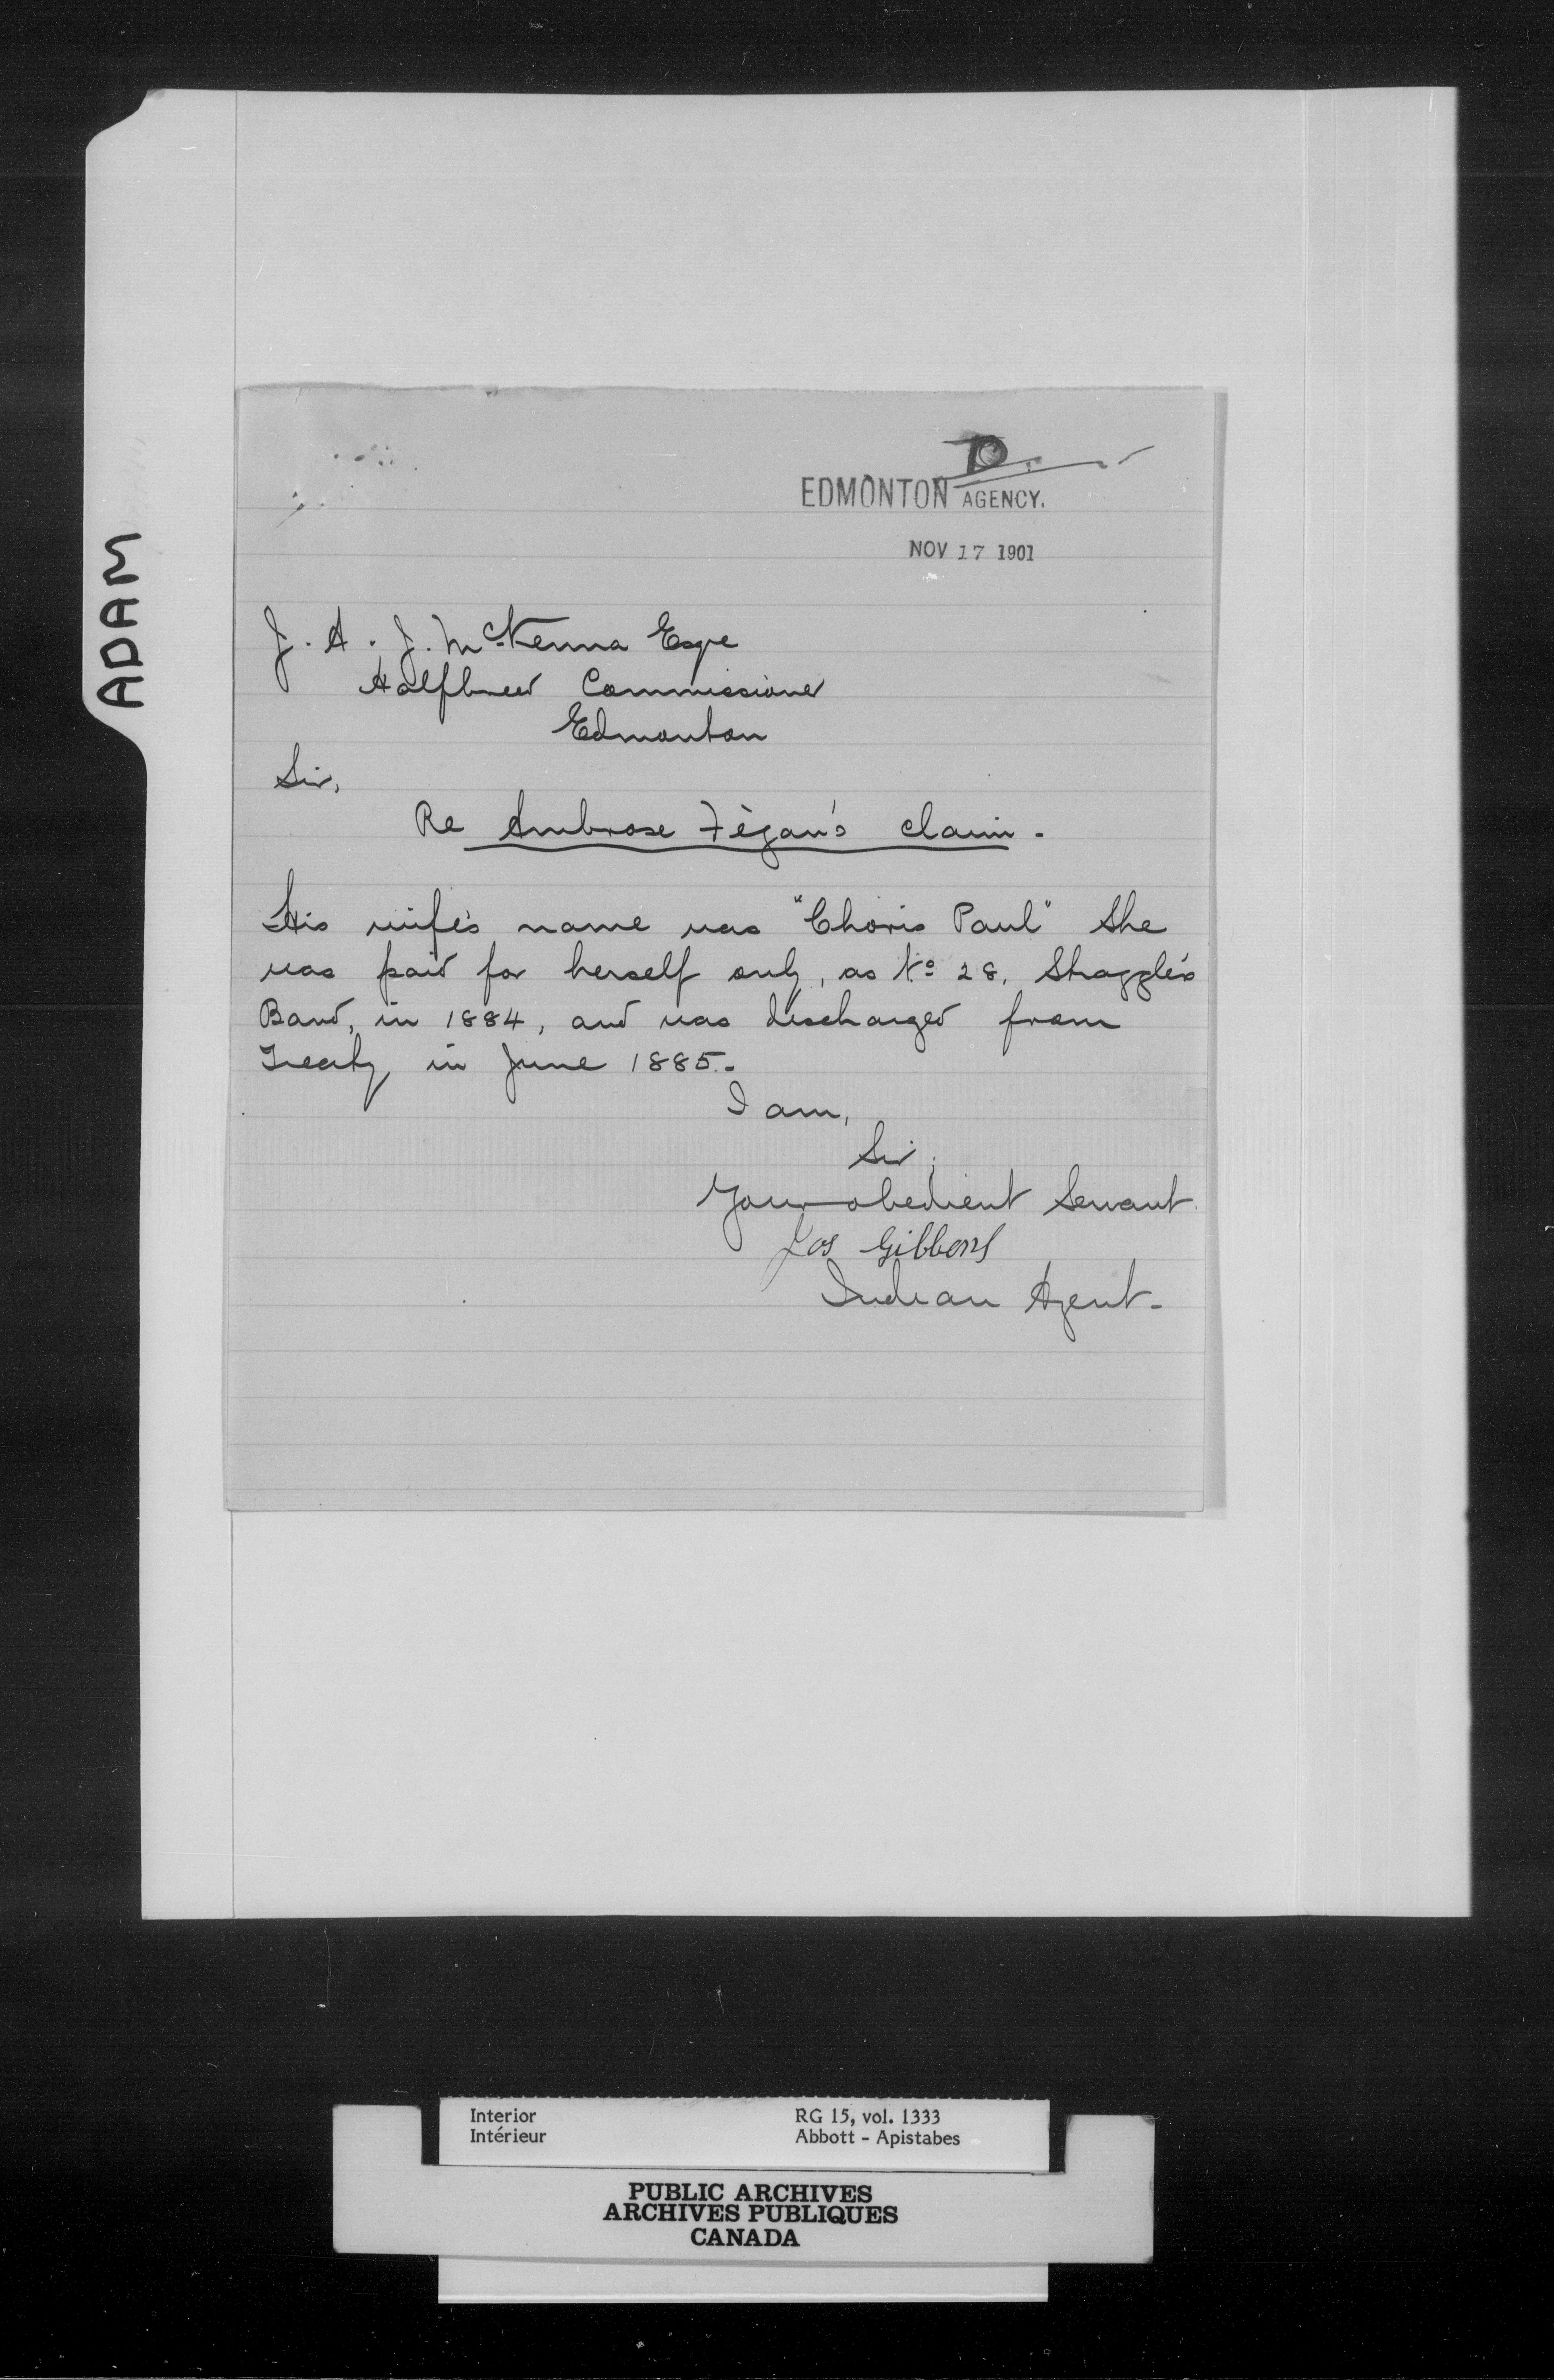 ADAM
EDMONTON AGENCY.
NOV 17 1901
J. A. J. McKenna Esqre
Halfbreed Commissioner
Edmonton
Sir,
Re Ambrose Fègan's claim.
His wife's name was "Choris Paul" She
was paid for herself only, as No 28, Straggler's
Band, in 1884, and was discharged from
Treaty in June 1885.
I am,
Sir,
Your obedient Servant.
Jos Gibbons
Indian Agent.
Interior RG 15, vol. 1333
Intérieur Abbott - Apistabes
PUBLIC ARCHIVES
ARCHIVES PUBLIQUES
CANADA